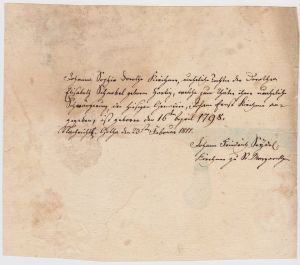 Johanne Sophie Dorothe Kirchner, uneheliche Tochter der Dorothea
Elisabeth Schnabel geborne Hartig, welche zum Vater ihrer unehelichen
Schwängerung den hiesigen Johann Ernst Kirchner an-
gegeben, ist geboren den 16ten April 1798.
Gotha den 23ten Februar 1811.
Johann Friedrich Seydel
Kirchner zu St. Margarethen